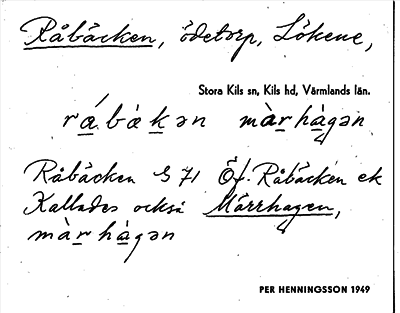 Råbäcken, ödetorp, Lökene,
Stora Kils sn, Kils hd, Värmlands län.
rábàkən màrhàgən
Råbäcken § 71 Öf. Råbäcken ek
Kallades också Märrhagen,
màrhàgən
PER HENNINGSSON 1949